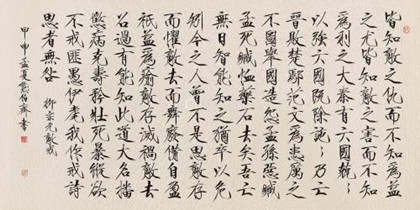 皆知敵之仇而不知為益
之尤皆知敵之害而不知
為利之大秦有六國兢兢
以強六國既除訑訑乃亡
晉敗楚鄢范文為患厲之
不圖舉國造怨孟孫惡臧
孟死臧恤藥石去矣吾亡
無日智能知之猶卒以危
矧今之人曾不是思敵存
而懼敵去而舞廢備自盈
祗益為瘉敵存滅禍敵去
召過有能知此道大名播
懲病克壽矜壯死暴縱欲
不戒匪愚伊耄我作戒詩
思者無咎 柳宗元敵戒
甲申孟夏熊伯齊書